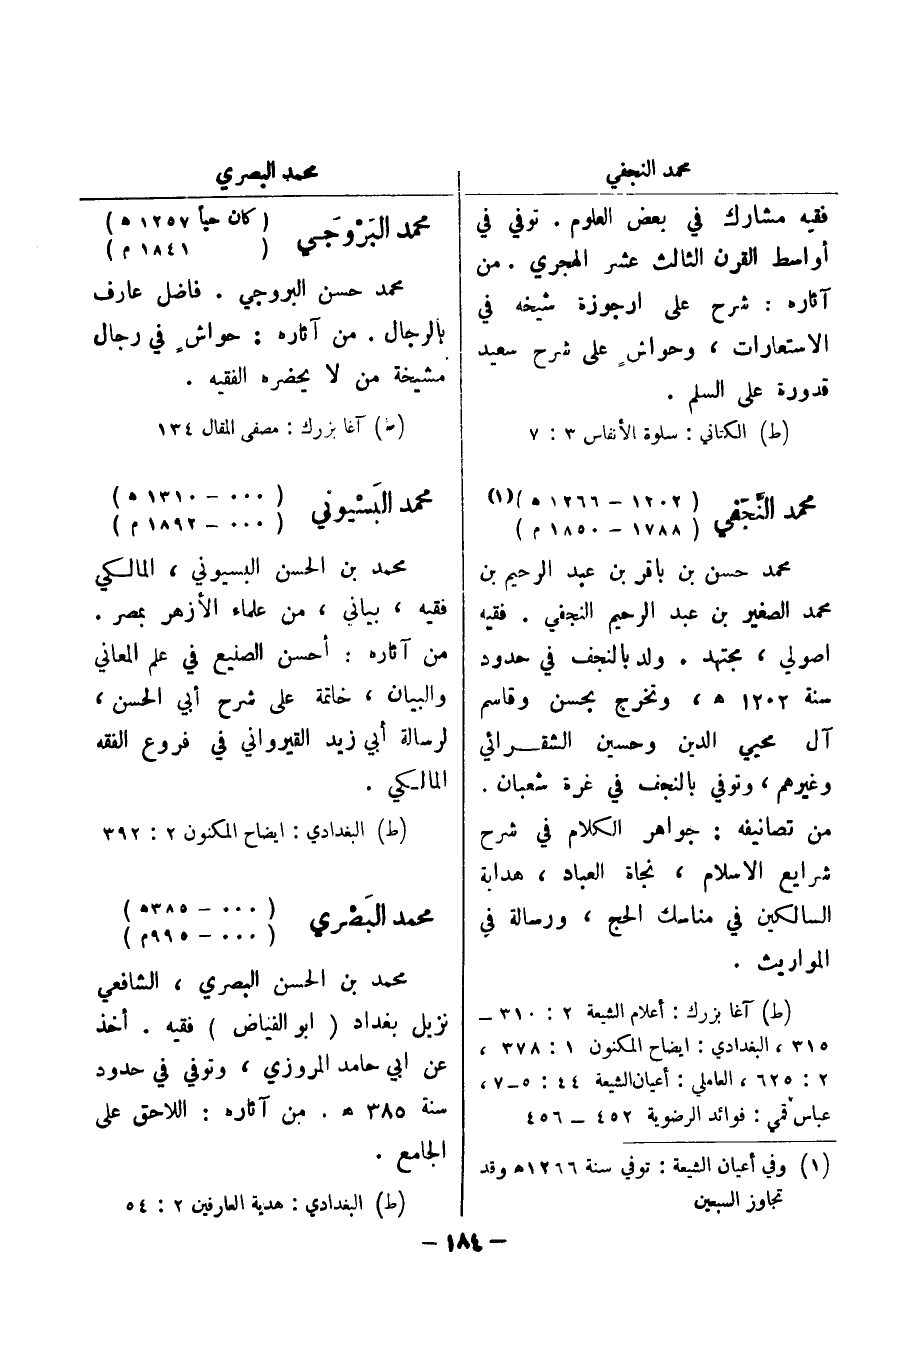 محمد النجفي
فقيه مشارك في بعض العلوم . توفي في
أواسط القرن الثالث عشر الهجري . من
آثاره : شرح على ارجوزة شيخه في
الاستعارات ، وحواشٍ على شرح سعيد
قدورة على السلم .
(ط) الكتاني : سلوة الأنفاس ٣ : ٧
محمد النَّجَفي ( ١٢٠٢ – ١٢٦٦ ه )(١)
( ١٧٨٨ – ١٨٥٠ م )
محمد حسن بن باقر بن عبد الرحيم بن
محمد الصغير بن عبد الرحيم النجفي . فقيه
اصولي ، مجتهد . ولد بالنجف في حدود
سنة ١٢٠٢ ه ، وتخرج بحسن وقاسم
آل محيي الدين وحسين الشقرائي
وغيرهم ، وتوفي بالنجف في غرة شعبان .
من تصانيفه : جواهر الكلام في شرح
شرايع الاسلام ، نجاة العباد ، هداية
السالكين في مناسك الحج ، ورسالة في
المواريث .
(ط) آغا بزرك : أعلام الشيعة ٢ : ٣١٠ –
٣١٥ ، البغدادي : ايضاح المكنون ١ : ٣٧٨ ،
٢ : ٦٢٥ ، العاملي : أعيان الشيعة ٤٤ : ٥–٧ ،
عباس قمي : فوائد الرضوية ٤٥٢ – ٤٥٦
(١) وفي أعيان الشيعة : توفي سنة ١٢٦٦ه وقد
تجاوز السبعين
محمد البصري
محمد البَرْوَجي ( كان حياً ١٢٥٧ ه )
( ١٨٤١ م )
محمد حسن البروجي . فاضل عارف
بالرجال . من آثاره : حواشٍ في رجال
مشيخة من لا يحضره الفقيه .
(ط) آغا بزرك : مصفى المقال ١٣٤
محمد البَسْيوني ( ٠٠٠ – ١٣١٠ ه )
( ٠٠٠ – ١٨٩٢ م )
محمد بن الحسن البسيوني ، المالكي
فقيه ، بياني ، من علماء الأزهر بمصر .
من آثاره : أحسن الصنيع في علم المعاني
والبيان ، خاتمة على شرح أبي الحسن ،
لرسالة أبي زيد القيرواني في فروع الفقه
المالكي .
(ط) البغدادي : ايضاح المكنون ٢ : ٣٩٢
محمد البَصْري ( ٠٠٠ – ٣٨٥ه )
( ٠٠٠ – ٩٩٥م )
محمد بن الحسن البصري ، الشافعي
نزيل بغداد ( ابو الفياض ) فقيه . أخذ
عن ابي حامد المروزي ، وتوفي في حدود
سنة ٣٨٥ ه . من آثاره : اللاحق على
الجامع .
(ط) البغدادي : هدية العارفين ٢ : ٥٤
– ١٨٤ –